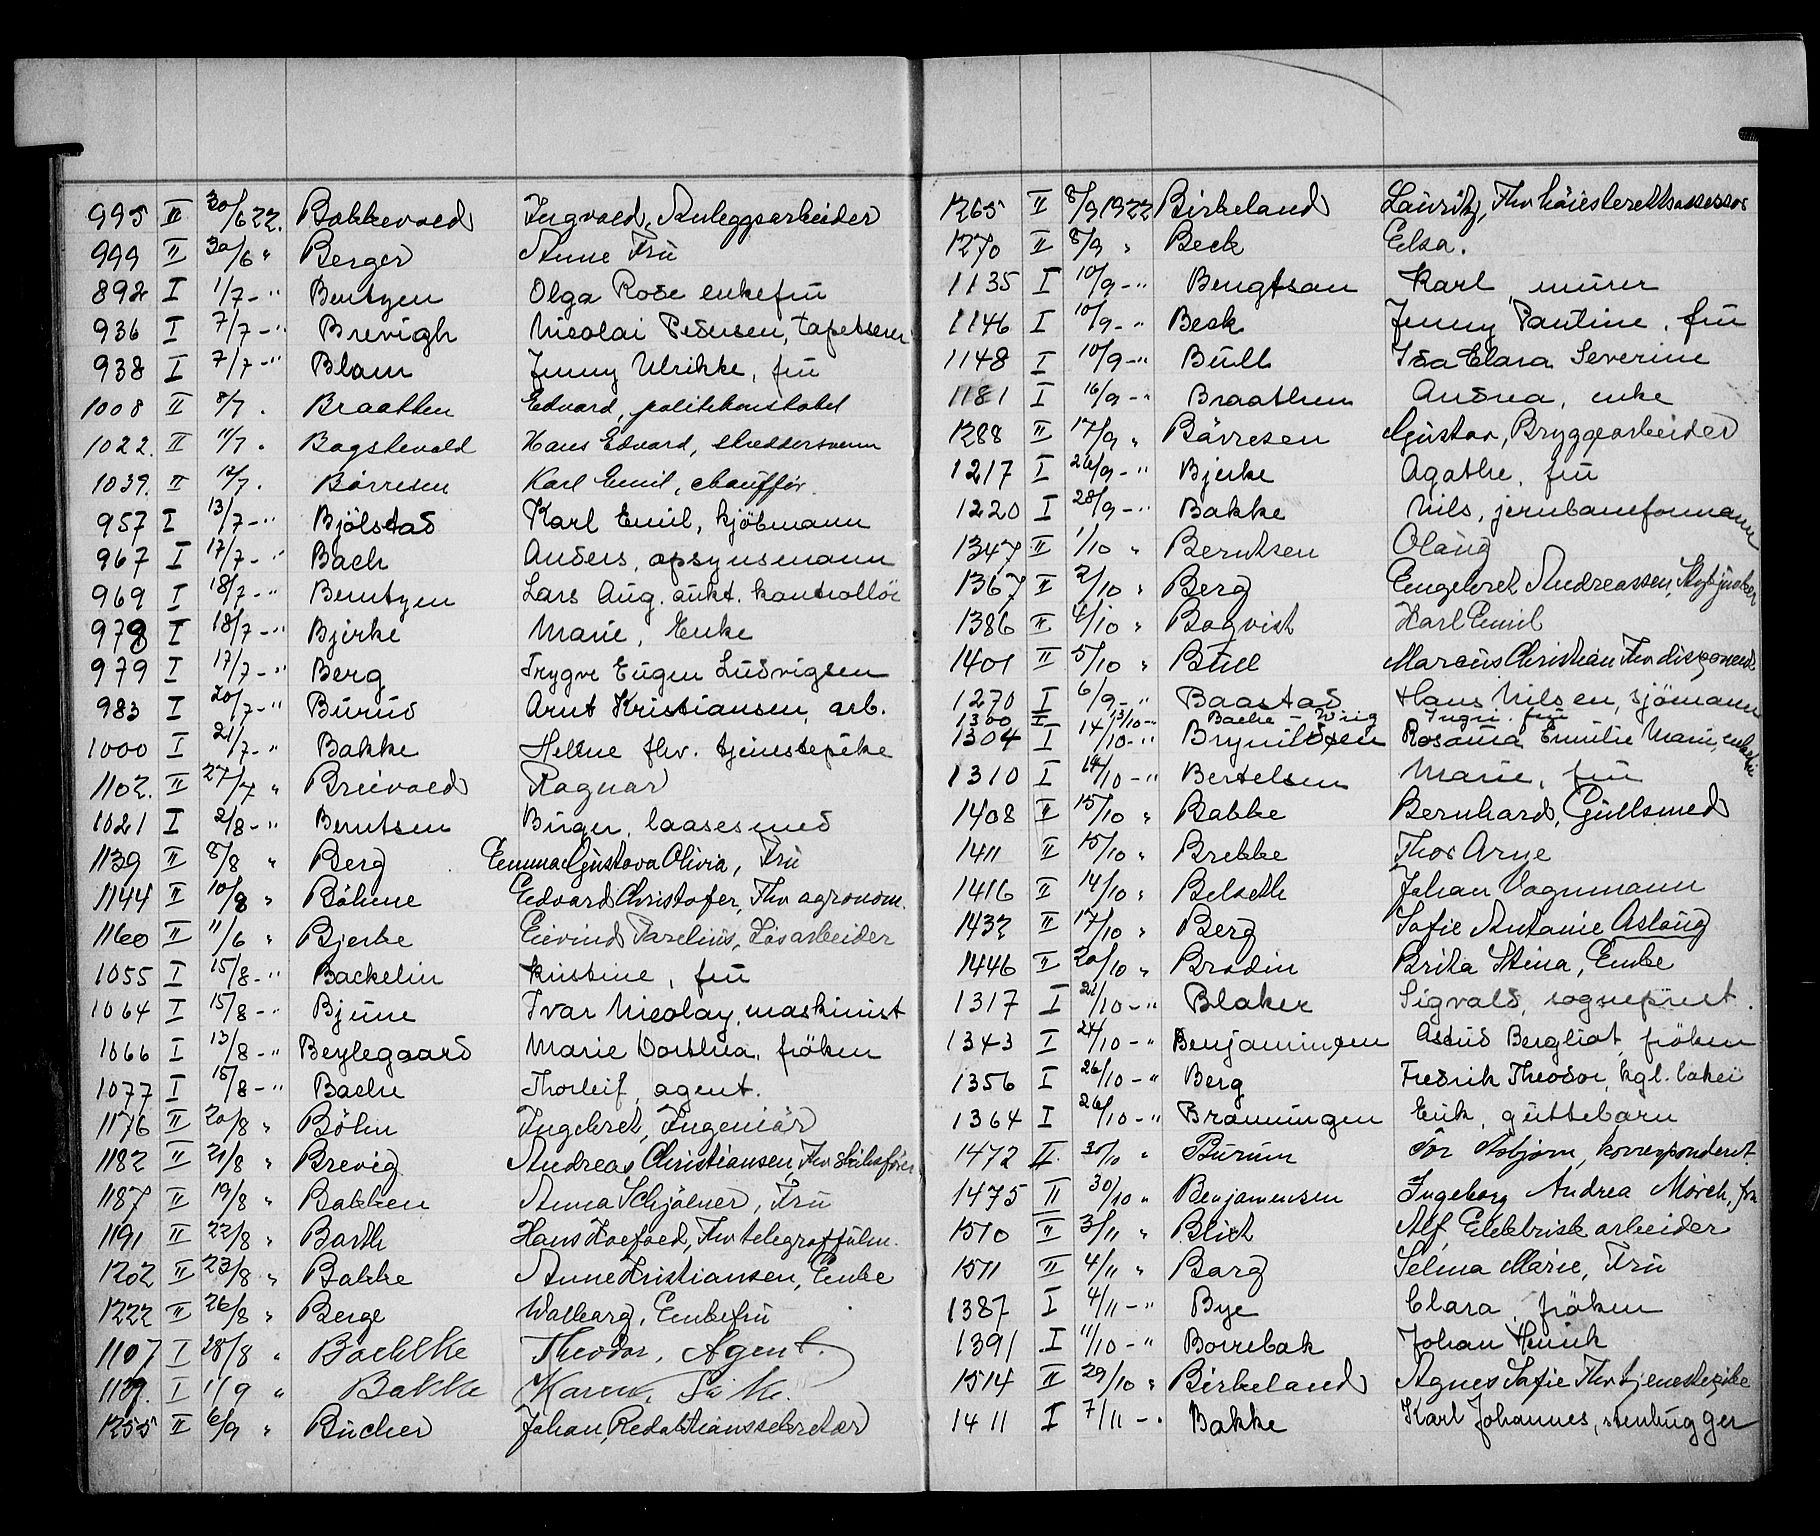 995 II 30/6 22. Bakkevold Ingvald, Anleggsarbeider
999 II 30/6 " Berger Anne Fru
892 I 1/7 - " Berntzen Olga Rose enkefru
936 I 7/7 - " Brevigh Nicolai Pedersen, tapetserer
938 I 7/7 - " Blom Jenny Ulrikke, fru
1008 II 8/7 . Braathen Edvard, politikonstabel
1022. II 11/7 . Bagstevold Hans Edvard, skreddersvenn
1039. II 12/7 . Børresen Karl Emil, chauffør.
957 I 13/7 - " Bjölstad Karl Emil, kjöbmann
967 I 17/7 - " Bach Anders, opsynsmann
969 I 18/7 - " Berntzen Lars Aug. aukt. kontrollör
978 I 18/7 - " Bjerke Marie, Enke
979 I 17/7 - " Berg Trygve Eugen Ludvigsen
983 I 20/7 - " Burud Arnt Kristiansen, arb.
1000 I 21/7 - " Bakke Hellene fhv. tjenestepike
1102. II 27/7 " Breivold Ragnar
1021 I 2/8 - " Berntsen Birger, laasesmed
1139 II 8/8 " Berg Emma Gustava Olivia, Fru
1144 II 10/8 " Böhme Edvard Christofer, Fhv agronom.
1160 II 11/6 " Bjerke Eivind Parelius, Løsarbeider
1055 I 15/8 - Backelin Kristine, fru
1064 I 15/8 - " Bjune Ivar Nicolay, maskinist
1066 I 13/8 - " Beylegaard Marie Dorthea, fröken
1077 I 15/8 - " Bache Thorleif, agent.
1176 II 20/8 " Böhn Ingebret, Ingeniör
1182 II 21/8 " Brevig Andreas Christiansen, Fhv skibsfører
1187 II 19/8 " Bakken Anna Schjølner, Fru
1191 II 22/8 " Barth Hans Koefoed, Fhv telegraffulm.
1202 II 23/8 " Bakke Anne Kristiansen, Enke
1222 II 26/8 " Berge Walborg, Enkefru
1107 I 28/8 " Baehlke Theodor, Agent.
1109. I 1/9 " Bakke Karen,
1255 II 6/9 " Bücher Johan, Redaktionssekretær
1265 II 8/9 1922 Birkeland Lauritz, Fhv høiesterettsassessor
1270 II 8/9 " Beck Elsa.
1135 I 10/9 - " Bengtson Karl murer
1146 I 10/9 - " Beck Jenny Pauline, fru
1148 I 10/9 - " Bull Ida Clara Severine
1181 I 16/9 - " Braathen Andrea, enke
1288 II 17/9 " Bärresen Gustav, Bryggearbeider
1217 I 26/9 - " Bjerke Agathe, fru
1220 I 28/9 - " Bakke Nils, jernbaneformann
1347 II 1/10 " Berntsen Olaug
1367 II 2/10 " Berg Engebret Andreassen,
1386 II 4/10 " Boqvist Karl Emil
1401 II 5/10 " Bull Marcus Christian Fhv disponent
1270 I 6/9 - " Baastad Hans Nilsen, sjömann
1300 I 13/10 - " Bache - Wiig Ingri. fru
1304 I 14/10 - " Brynildsen Rosama Emilie Marie, enkefru
1310 I 14/10 - " Bertelsen Marie, fru
1408 II 15/10 " Bakke Bernhard, Gullsmed
1411 II 15/10 " Brekke Thor Arne
1416 II 14/10 " Belseth Johan Vognmann
1432 II 17/10 " Berg Sofie Antonie Aslaug
1446 II 20/10 " Brodin Brita Stina, Enke
1317 I 21/10 - " Blaker Sigvald, sogneprest.
1343 I 24/10 - " Benjaminsen Astrid Bergliot, fröken
1356 I 26/10 - " Berg Fredrik Theodor, kgl. lakei
1364 I 26/10 - " Bramningen Erik, guttebarn
1472 II. 30/10 " Burum Tor Asbjørn, korrespondent.
1475 II 30/10 " Benjamensen Ingeborg Andrea Mörch, fru
1510 II 3/11 " Blich Alf, Elektrisk arbeider
1511 II 4/11 " Barg Selma Marie, Fru
1387 I 4/11 - " Bye Clara, fröken
1391 I 11/10 - " Borrebak Johan Henrik
1514 II 29/10 " Birkeland Agnes Sofie Fhv tjenestepike
1411 I 7/11 - " Bakke Karl Johannes, stenhugger